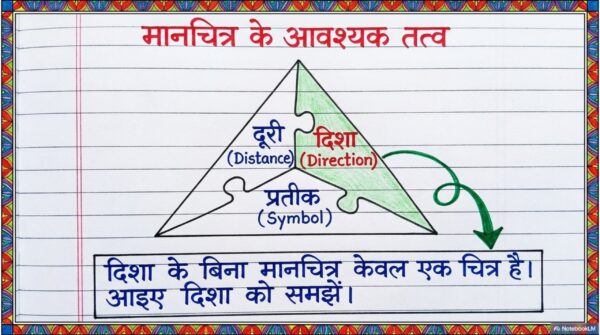 मानचित्र के आवश्यक तत्व
दूरी
(Distance)
दिशा
(Direction)
प्रतीक
(Symbol)
दिशा के बिना मानचित्र केवल एक चित्र है।
आइए दिशा को समझें।
NotebookLM